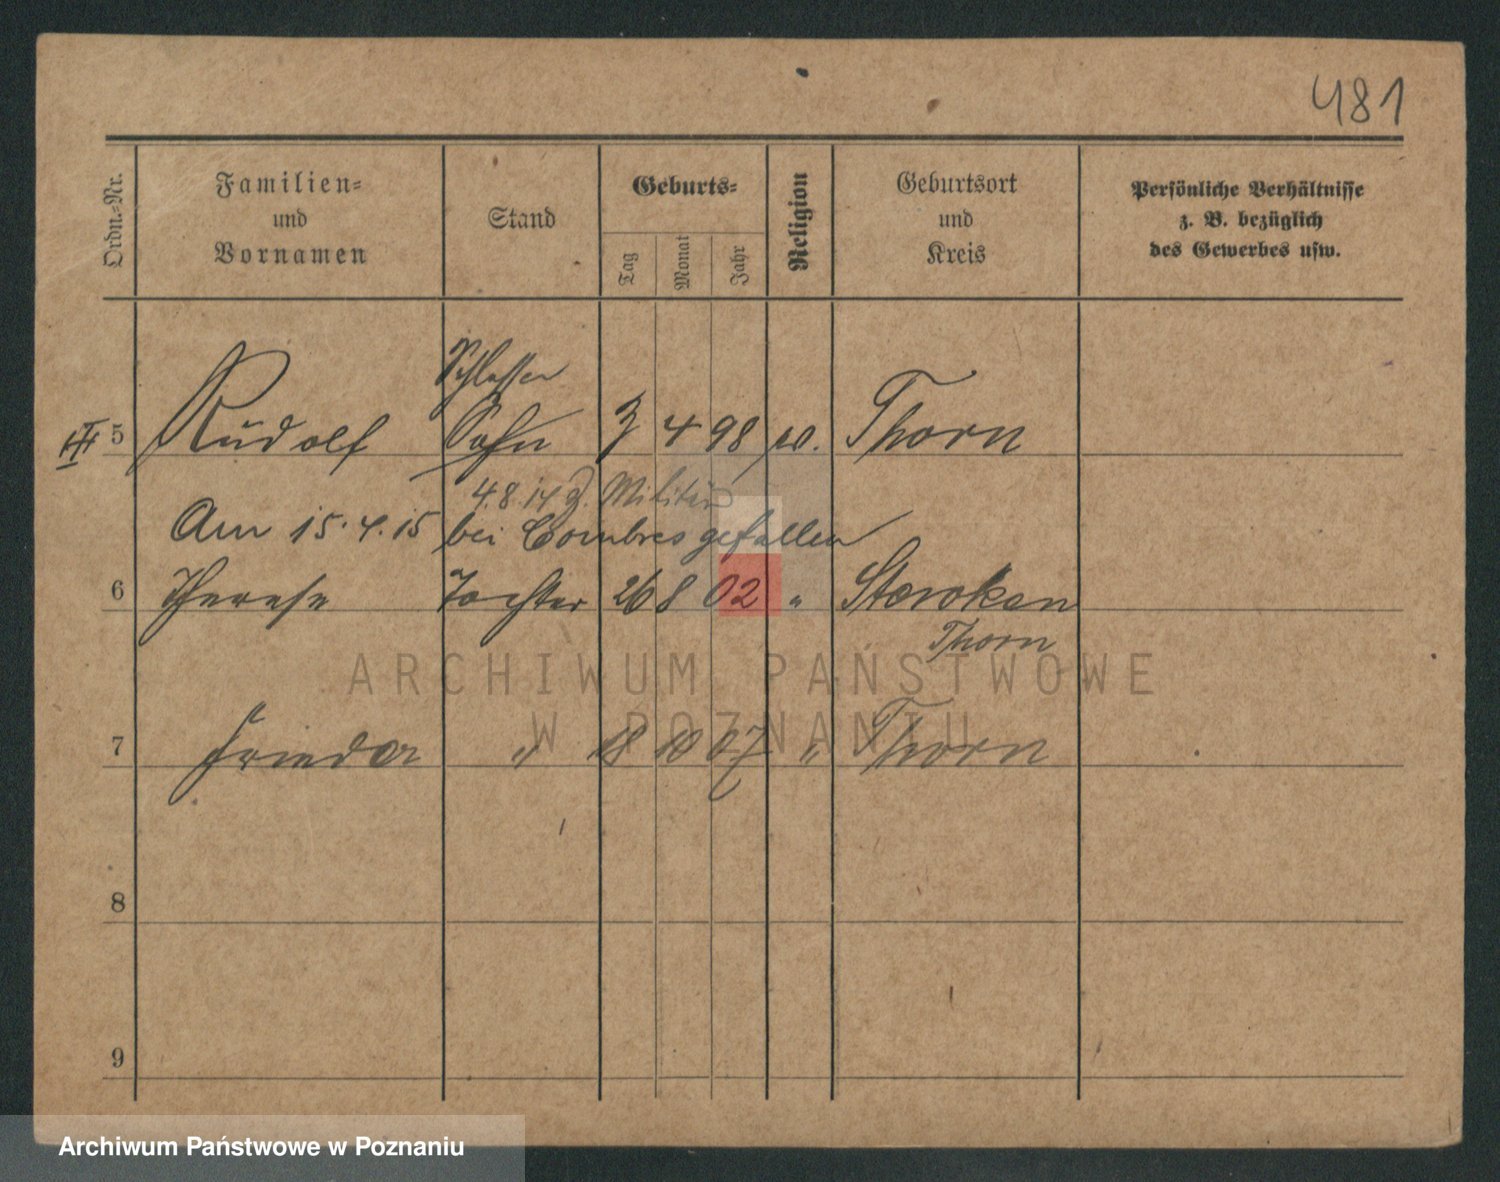 481
Ordn.-Nr.
Familien=
und
Vornamen
Stand
Geburts=
Tag
Monat
Jahr
Religion
Geburtsort
und
Kreis
Persönliche Verhältnisse
z. B. bezüglich
des Gewerbes usw.
Schlosser
III 5 Rudolf Sohn 3 4 98 ev. Thorn
4.8.14 z. Militär
Am 15.4.15 bei Combres gefallen
6 Therese Tochter 26 8 02 " Stewken
Thorn
7 Frieda " 18 10 07 " Thorn
8
9
ARCHIWUM PAŃSTWOWE
W POZNANIU
Archiwum Państwowe w Poznaniu